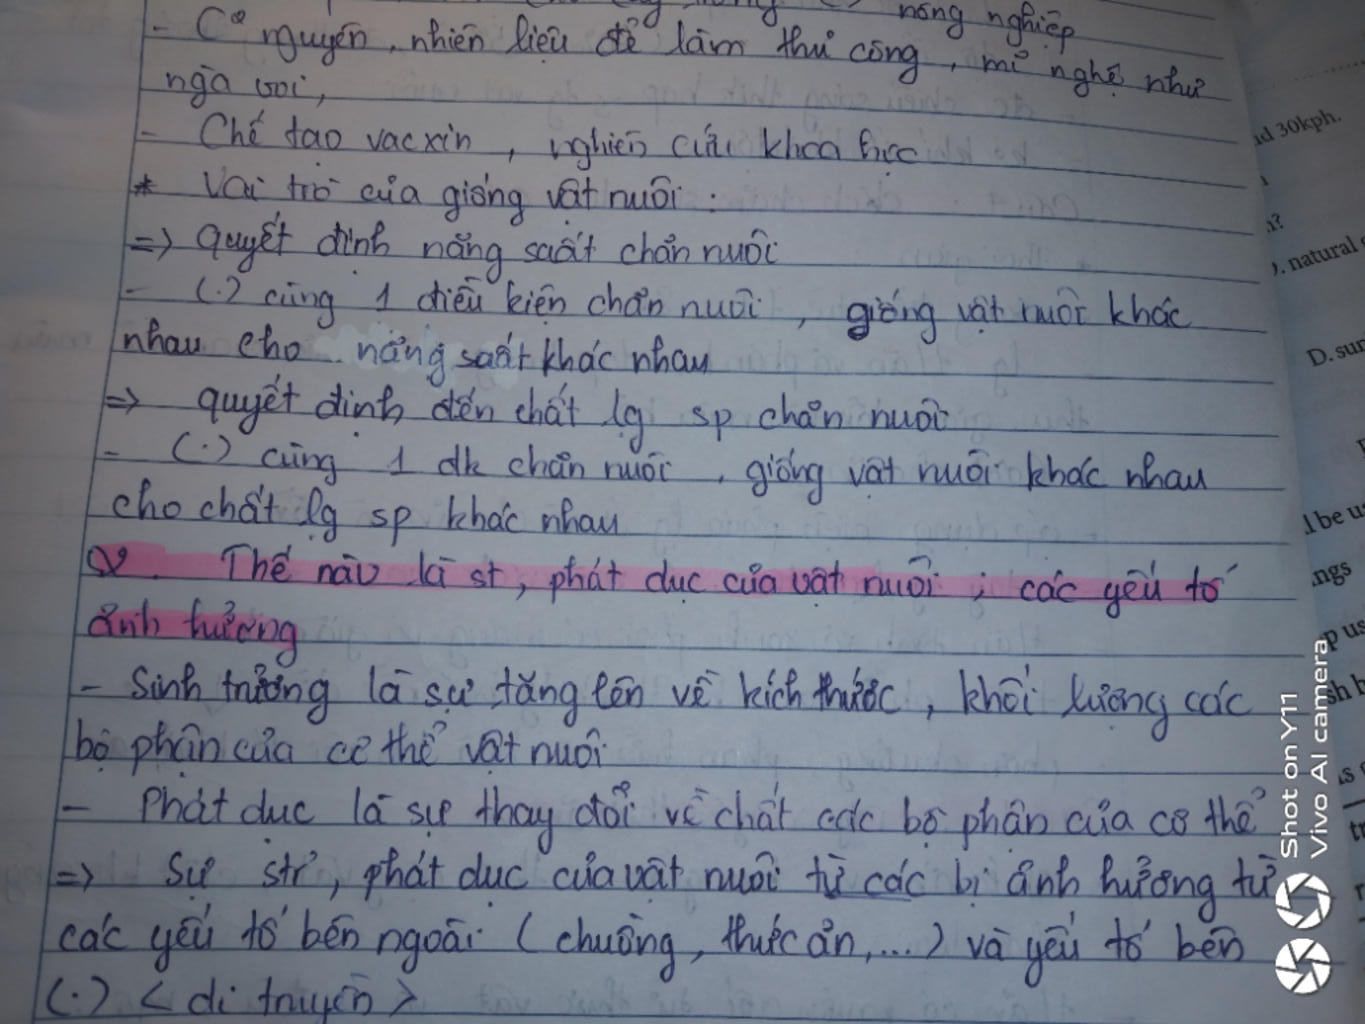 nông nghiệp
- Cº nguyên, nhiên liệu để làm thủ công, mĩ nghệ như
ngà voi,
- Chế tạo vacxin, nghiên cứu khoa học
* Vai trò của giống vật nuôi:
=> quyết định năng suất chăn nuôi
- (.) cùng 1 điều kiện chăn nuôi, giống vật nuôi khác
nhau cho năng suất khác nhau
=> quyết định đến chất lg sp chăn nuôi
- (.) cùng 1 đk chăn nuôi, giống vật nuôi khác nhau
cho chất lg sp khác nhau
V. Thế nào là st, phát dục của vật nuôi; các yếu tố
ảnh hưởng
- Sinh trưởng là sự tăng lên về kích thước, khối lượng các
bộ phận của cơ thể vật nuôi
- Phát dục là sự thay đổi về chất các bộ phận của cơ thể
=> Sự str, phát dục của vật nuôi từ các bị ảnh hưởng từ
các yếu tố bên ngoài (chuồng, thức ăn,...) và yếu tố bên
(.) < di truyền >
30kph.
natural
D. sur
be u
ngs
Shot on Y11
Vivo AI camera